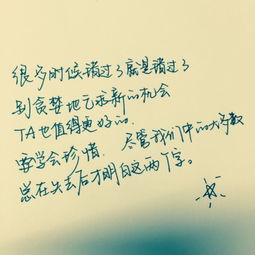 很多时候错过了就是错过了
别贪婪地乞求新的机会
TA也值得更好的.
要学会珍惜. 尽管我们中的大多数
总在失去后才明白这两个字。